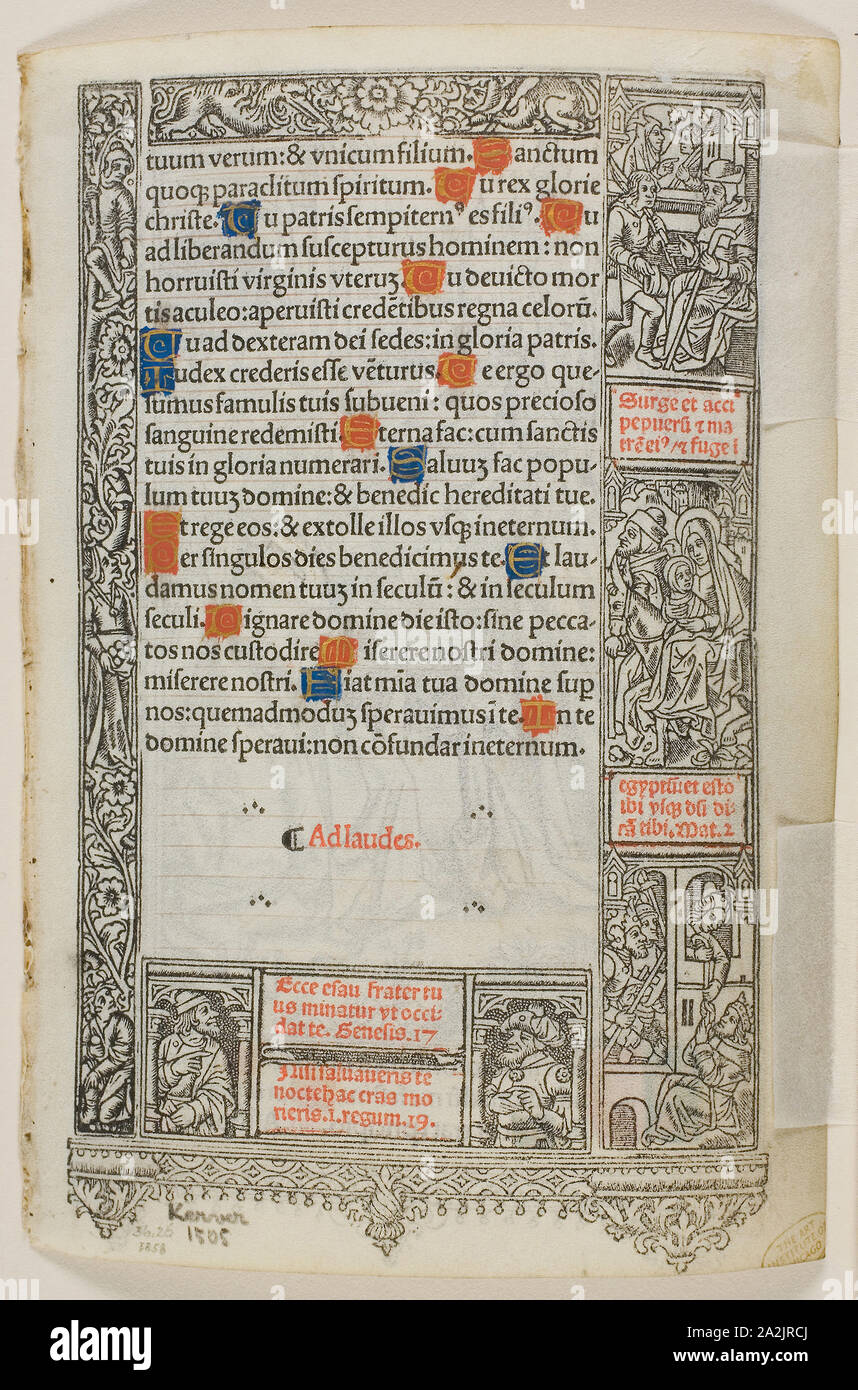 tuum verum: & vnicum filium. Sanctum
quoqꝫ paraclitum ſpiritum. Tu rex glorie
chriſte. Tu patris ſempiternꝰ es filiꝰ. Tu
ad liberandum ſuſcepturus hominem: non
horruiſti virginis vteruꝫ. Tu deuicto mor
tis aculeo: aperuiſti credētibus regna celorū.
Tu ad dexteram dei ſedes: in gloria patris.
Iudex crederis eſſe vēturus. Te ergo que-
ſumus famulis tuis ſubueni: quos precioſo
ſanguine redemiſti. Eterna fac: cum ſanctis
tuis in gloria numerari. Saluuꝫ fac popu-
lum tuuꝫ domine: & benedic hereditati tue.
Et rege eos: & extolle illos vſqꝫ in eternum.
Per ſingulos dies benedicimus te. Et lau-
damus nomen tuuꝫ in ſeculū: & in ſeculum
ſeculi. Dignare domine die iſto: ſine pecca-
tos nos cuſtodire. Miſerere noſtri domine:
miſerere noſtri. Fiat mīa tua domine ſuꝑ
nos: quemadmoduꝫ ſperauimus ī te. In te
domine ſperaui: non cōfundar in eternum.
¶ Ad laudes.
Surge et acci
pe puerū ⁊ ma
trē eiꝰ / ⁊ fuge ī
egyptū: et eſto
ibi vſqꝫ dū di-
cā tibi. Mat. 2
Ecce eſau frater tu
us minatur vt occi-
dat te. Geneſis. 17
Niſi ſaluaueris te
nocte hac cras mo
rieris. i. regum. 19.
Kerver
1505
36.26
THE ART
INSTITUTE OF
CHICAGO
alamy
alamy
Image ID: 2A2JRCJ
www.alamy.com